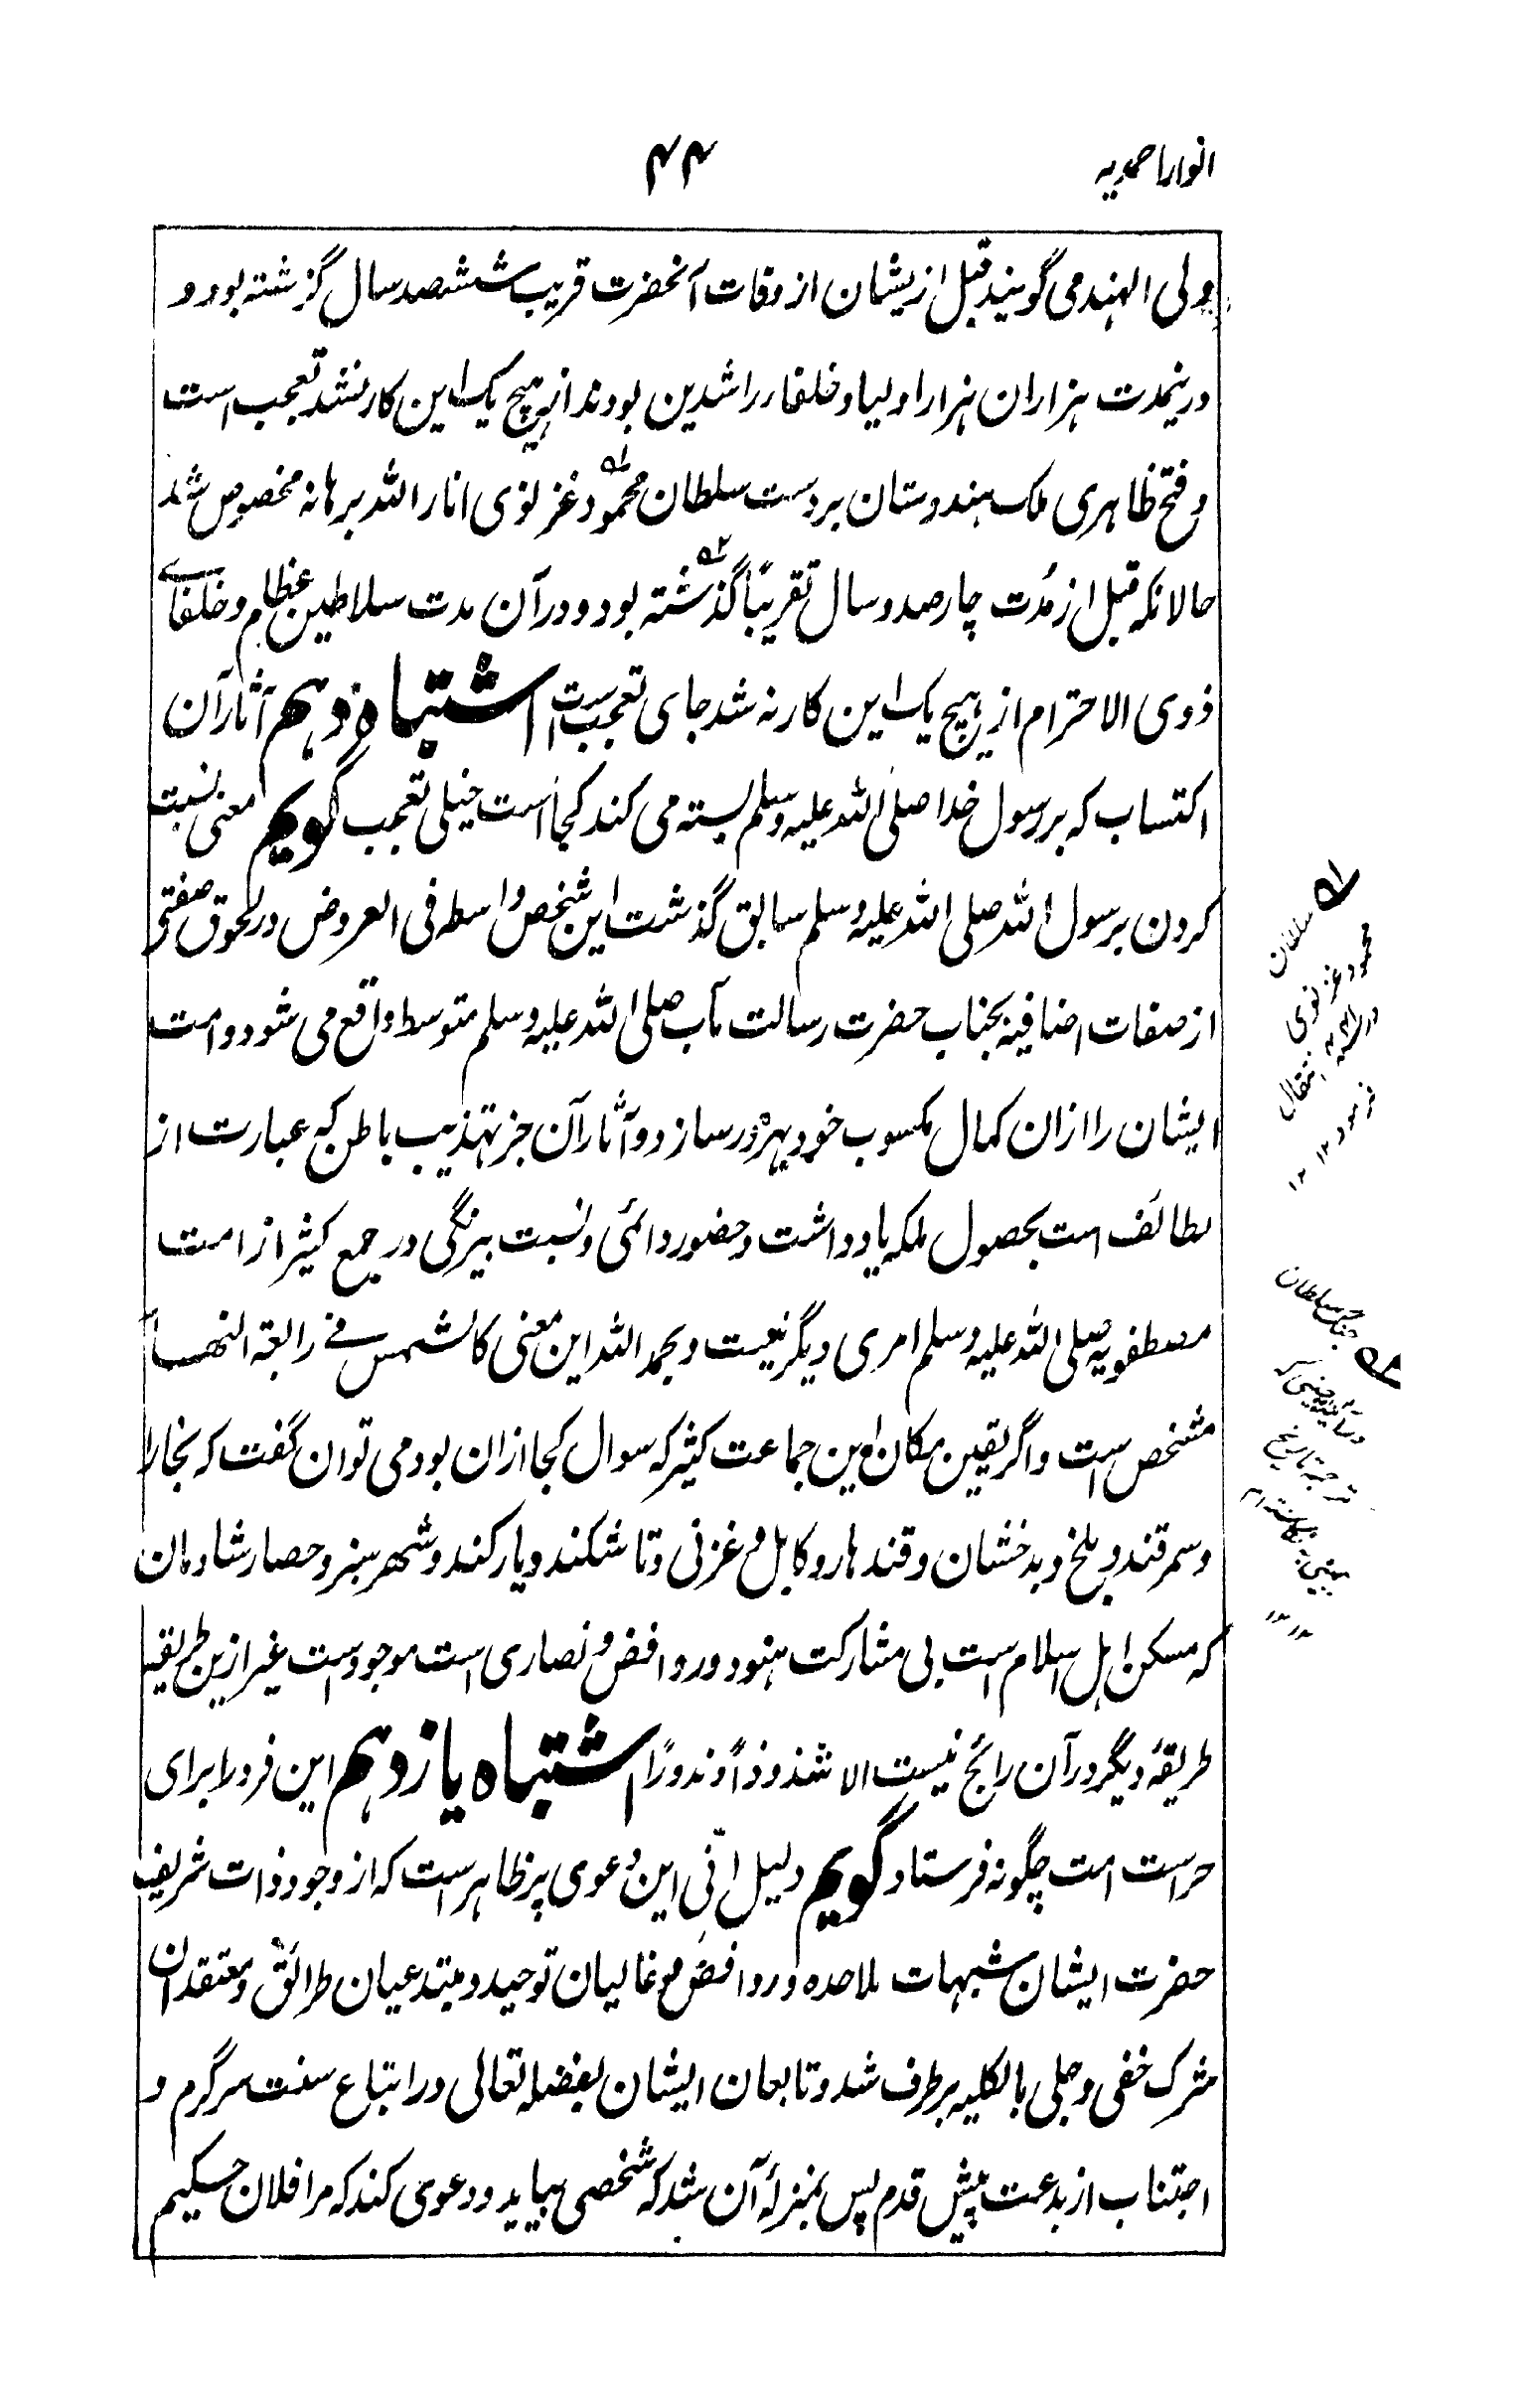 انوار احمدیه
۴۴
ولی الهند می گویند قبل از یشان از وفات آنحضرت قریب ششصد سال گزشته بود و
درینمدت هزاران هزار اولیا و خلفاء راشدین بودند از هیچ یک این کار نشد تعجب است
و فتح ظاهری ملک هندوستان بر دست سلطان محمود غزنوی انار الله برهانه مخصوص شد
حالانکه قبل از مُدت چار صد و سال تقریباً گذشته بود و در آن مدت سلاطین عظام و خلفای
ذوی الاحترام از هیچ یک این کار نه شد جای تعجب است اشتباه دهم آثار آن
اکتساب که بر رسول خدا صلی الله علیه وسلم بسته می کند کجا است خیلی تعجب گویم معنی نسبت
کردن برسول الله صلی الله علیه وسلم سابق گذشت این شخص واسطه فی العروض در لحوق صفتی
از صفات اضافیه بجناب حضرت رسالت مآب صلی الله علیه وسلم متوسط واقع می شود و امت
ایشان را ازان کمال مکسوب خود بهره ور سازد و آثار آن جز تهذیب باطن که عبارت از
لطائف است بحصول ملکه یادداشت و حضور دائمی و نسبت بیرنگی در جمع کثیر از امت
مصطفویه صلی الله علیه وسلم امری دیگر نیست و بحمد الله این معنی کالشمس فے رابعة النهار
مشخص است و اگر یقین مکان این جماعت کثیر که سوال کجا ازان بود می توان گفت که بخارا
و سمرقند و بلخ و بدخشان و قندهار و کابل و غزنی و تاشکند و یارکند و شهر سبز و حصار شادمان
که مسکن اهل اسلام است بی مشارکت هنود و روافض و نصاری است موجود است غیر ازین طریقه
طریقهٔ دیگر در آن رائج نیست الا شذوذاً و ندورًا اشتباه یازدهم این فرد را برای
حراست امت چگونه فرستاد گویم دلیل انّی این دعوی پر ظاهر است که از وجود ذات شریف
حضرت ایشان شبهات ملاحده و روافض و غالیان توحید و مبتدعیان طرائق و معتقدان
شرک خفی و جلی بالکلیه برطرف شد و تابعان ایشان بفضله تعالی در اتباع سنت سرگرم و
اجتناب از بدعت پیش قدم پس بمنزلهٔ آن شد که شخصی بیاید و دعوی کند که مرا فلان حکیم
سلطان
محمود غزنوی
انتقال
فرمود ۱۲
جنگ سلطان
ترجمه تاریخ